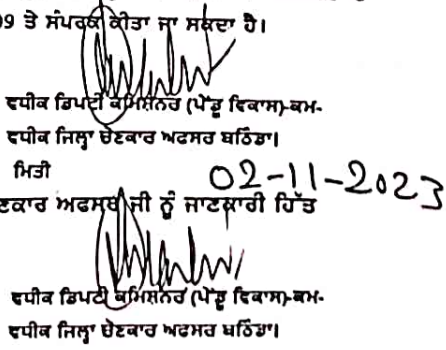 09 ਤੇ ਸੰਪਰਕ ਕੀਤਾ ਜਾ ਸਕਦਾ ਹੈ।
ਵਧੀਕ ਡਿਪਟੀ ਕਮਿਸ਼ਨਰ (ਪੇਂਡੂ ਵਿਕਾਸ)-ਕਮ-
ਵਧੀਕ ਜਿਲ੍ਹਾ ਚੋਣਕਾਰ ਅਫਸਰ ਬਠਿੰਡਾ।
ਮਿਤੀ 02-11-2023
ਣਕਾਰ ਅਫਸਰ ਜੀ ਨੂੰ ਜਾਣਕਾਰੀ ਹਿੱਤ
ਵਧੀਕ ਡਿਪਟੀ ਕਮਿਸ਼ਨਰ (ਪੇਂਡੂ ਵਿਕਾਸ)-ਕਮ-
ਵਧੀਕ ਜਿਲ੍ਹਾ ਚੋਣਕਾਰ ਅਫਸਰ ਬਠਿੰਡਾ।